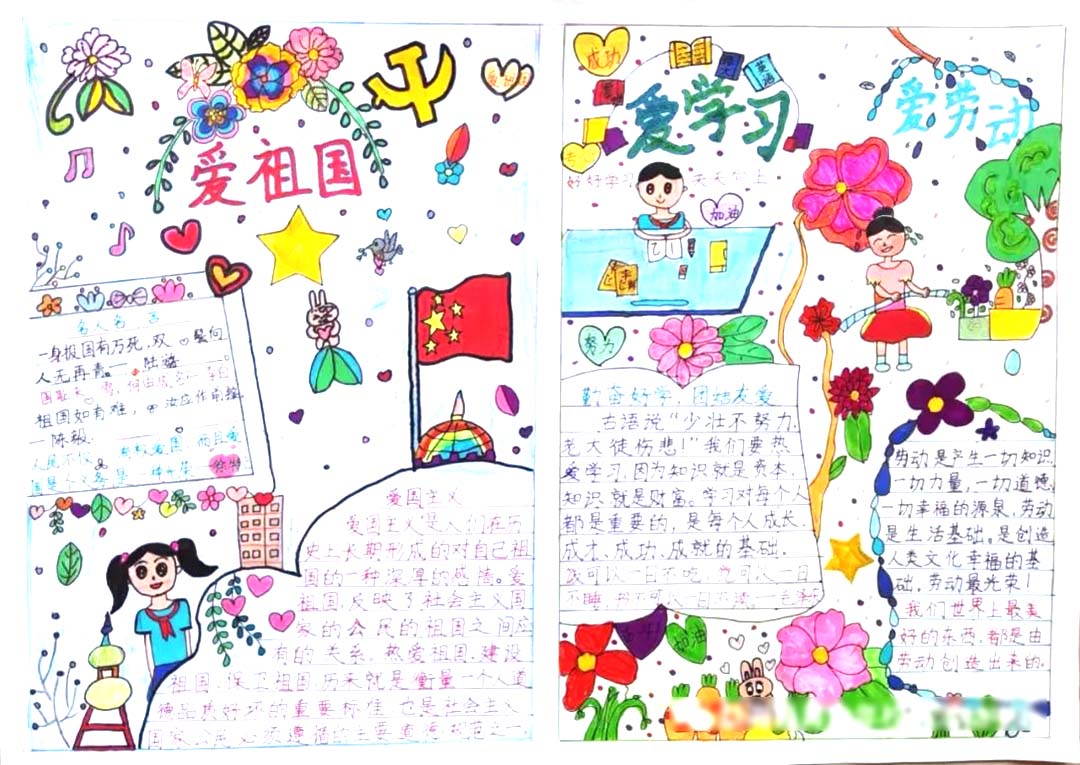 爱祖国
名人名言
一身报国有万死,双鬓向
人无再青——陆游
祖国如有难,汝应作前锋
—陈毅.
爱国主义
爱国主义是人们在历
史上长期形成的对自己祖
国的一种深厚的感情。爱
祖国,反映了社会主义国
家的公民的祖国之间应
有的关系,热爱祖国,建设
祖国,保卫祖国,历来就是衡量一个人道
德品质好坏的重要标准,也是社会主义
成功
英语
爱学习
好好学习 天天向上
加油
努力
勤奋好学,团结友爱
古语说“少壮不努力,
老大徒伤悲!”我们要热
爱学习,因为知识就是资本,
知识就是财富。学习对每个人
都是重要的,是每个人成长,
成才,成功,成就的基础.
饭可以一日不吃,觉可以一日
加油
爱劳动
劳动是产生一切知识,
一切力量,一切道德,
一切幸福的源泉,劳动
是生活基础。是创造
人类文化幸福的基
础,劳动最光荣!
我们世界上最美
好的东西,都是由
劳动创造出来的.